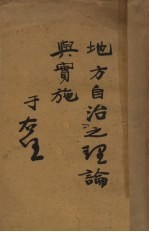 地方自治之理論
與實施
于右任